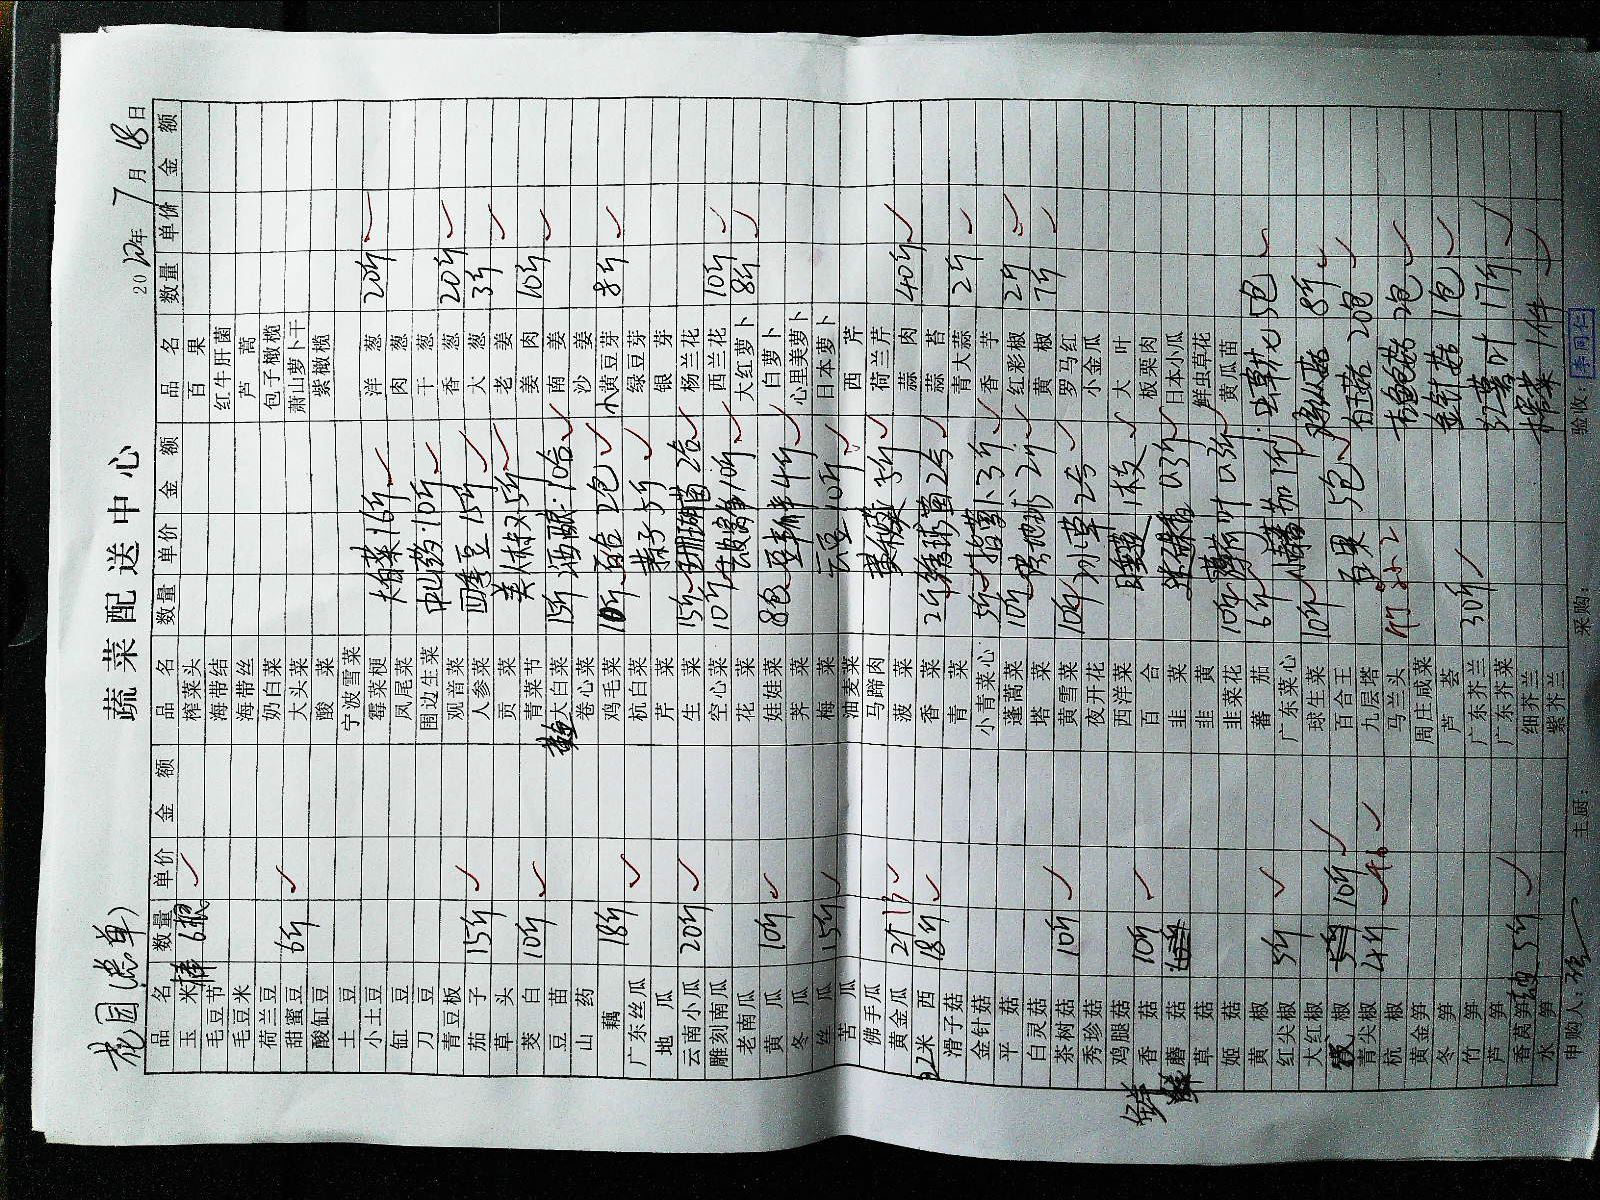 花园(总单)
蔬菜配送中心
2022年7月18日
品名 数量 单价 金额 品名 数量 单价 金额 品名 数量 单价 金额
玉米 棒6根 ✓ 榨菜头 百果
毛豆节 海带结 红牛肝菌
毛豆米 海带丝 芦蒿
荷兰豆 奶白菜 包子橄榄
甜蜜豆 6斤 ✓ 大头菜 萧山萝卜干
酸缸豆 酸菜 紫橄榄
土豆 宁波雪菜
小土豆 霉菜梗 大白菜 16斤 ✓ 洋葱 20斤 ✓
缸豆 凤尾菜 肉葱
刀豆 围边生菜 山药 10斤 ✓ 干葱
青豆板 观音菜 香葱 20斤 ✓
茄子 15斤 ✓ 人参菜 四季豆 15斤 ✓ 大葱 3斤
草头 贡菜 5斤 ✓ 老姜 ✓
茭白 10斤 ✓ 青菜节 姜肉 10斤
豆苗 大白菜 15斤 10合 ✓ 南姜 ✓
山药 卷心菜 沙姜
藕 18斤 鸡毛菜 10斤 百合 2包 ✓ 小黄豆芽 8斤 ✓
广东丝瓜 ✓ 杭白菜 5斤 ✓ 绿豆芽
地瓜 芹菜 银芽
云南小瓜 20斤 ✓ 生菜 15斤 2合 ✓ 杨兰花
雕刻南瓜 空心菜 10斤 10斤 ✓ 西兰花 10斤 ✓
老南瓜 花菜 大红萝卜 8斤 ✓
黄瓜 10斤 ✓ 娃娃菜 8包 4斤 ✓ 白萝卜
冬瓜 荠菜 心里美萝卜
丝瓜 15斤 ✓ 梅菜 10斤 ✓ 日本萝卜
苦瓜 油麦菜 西芹
佛手瓜 马蹄肉 3斤 ✓ 荷兰芹
黄金瓜 2个 ✓ 菠菜 蒜肉 40斤 ✓
米西 18斤 ✓ 香菜 2斤 ✓ 蒜苔
滑子菇 青菜 青大蒜 2斤 ✓
金针菇 小青菜心 5斤 3斤 ✓ 香芋
平菇 蓬蒿菜 10斤 2斤 ✓ 红彩椒 2斤 ✓
白灵菇 塔菜 黄椒 7斤 ✓
茶树菇 10斤 ✓ 黄雪菜 10斤 冰草 ✓ 罗马红
秀珍菇 夜开花 小金瓜
鸡腿菇 西洋菜 1枝 ✓ 大叶
鲜 香菇 10斤 ✓ 百合 板栗肉
蘑菇 韭菜 0.3斤 ✓ 日本小瓜
草菇 韭黄 鲜虫草花
姬菇 韭菜花 10斤 薄荷叶 0.3斤 ✓ 黄瓜苗
黄椒 蕃茄 6斤 虫草花 5包 ✓
红尖椒 5斤 ✓ 广东菜心
大红椒 球生菜 10斤 8斤 ✓
椒 10斤 ✓ 百合王 百果 5包 ✓ 白玉菇 20包 ✓
青尖椒 4斤 ✓ 九层塔
杭椒 马兰头 2包 ✓
黄金笋 周庄咸菜
冬笋 芦荟 金针菇 1包 ✓
竹笋 广东芥兰 30斤 ✓
芦笋 广东芥菜 红薯叶 17斤 ✓
香莴笋 5斤 ✓ 细芥兰 1件 ✓
水笋 紫芥兰
申购人: 主厨: 采购: 验收: 李同仁